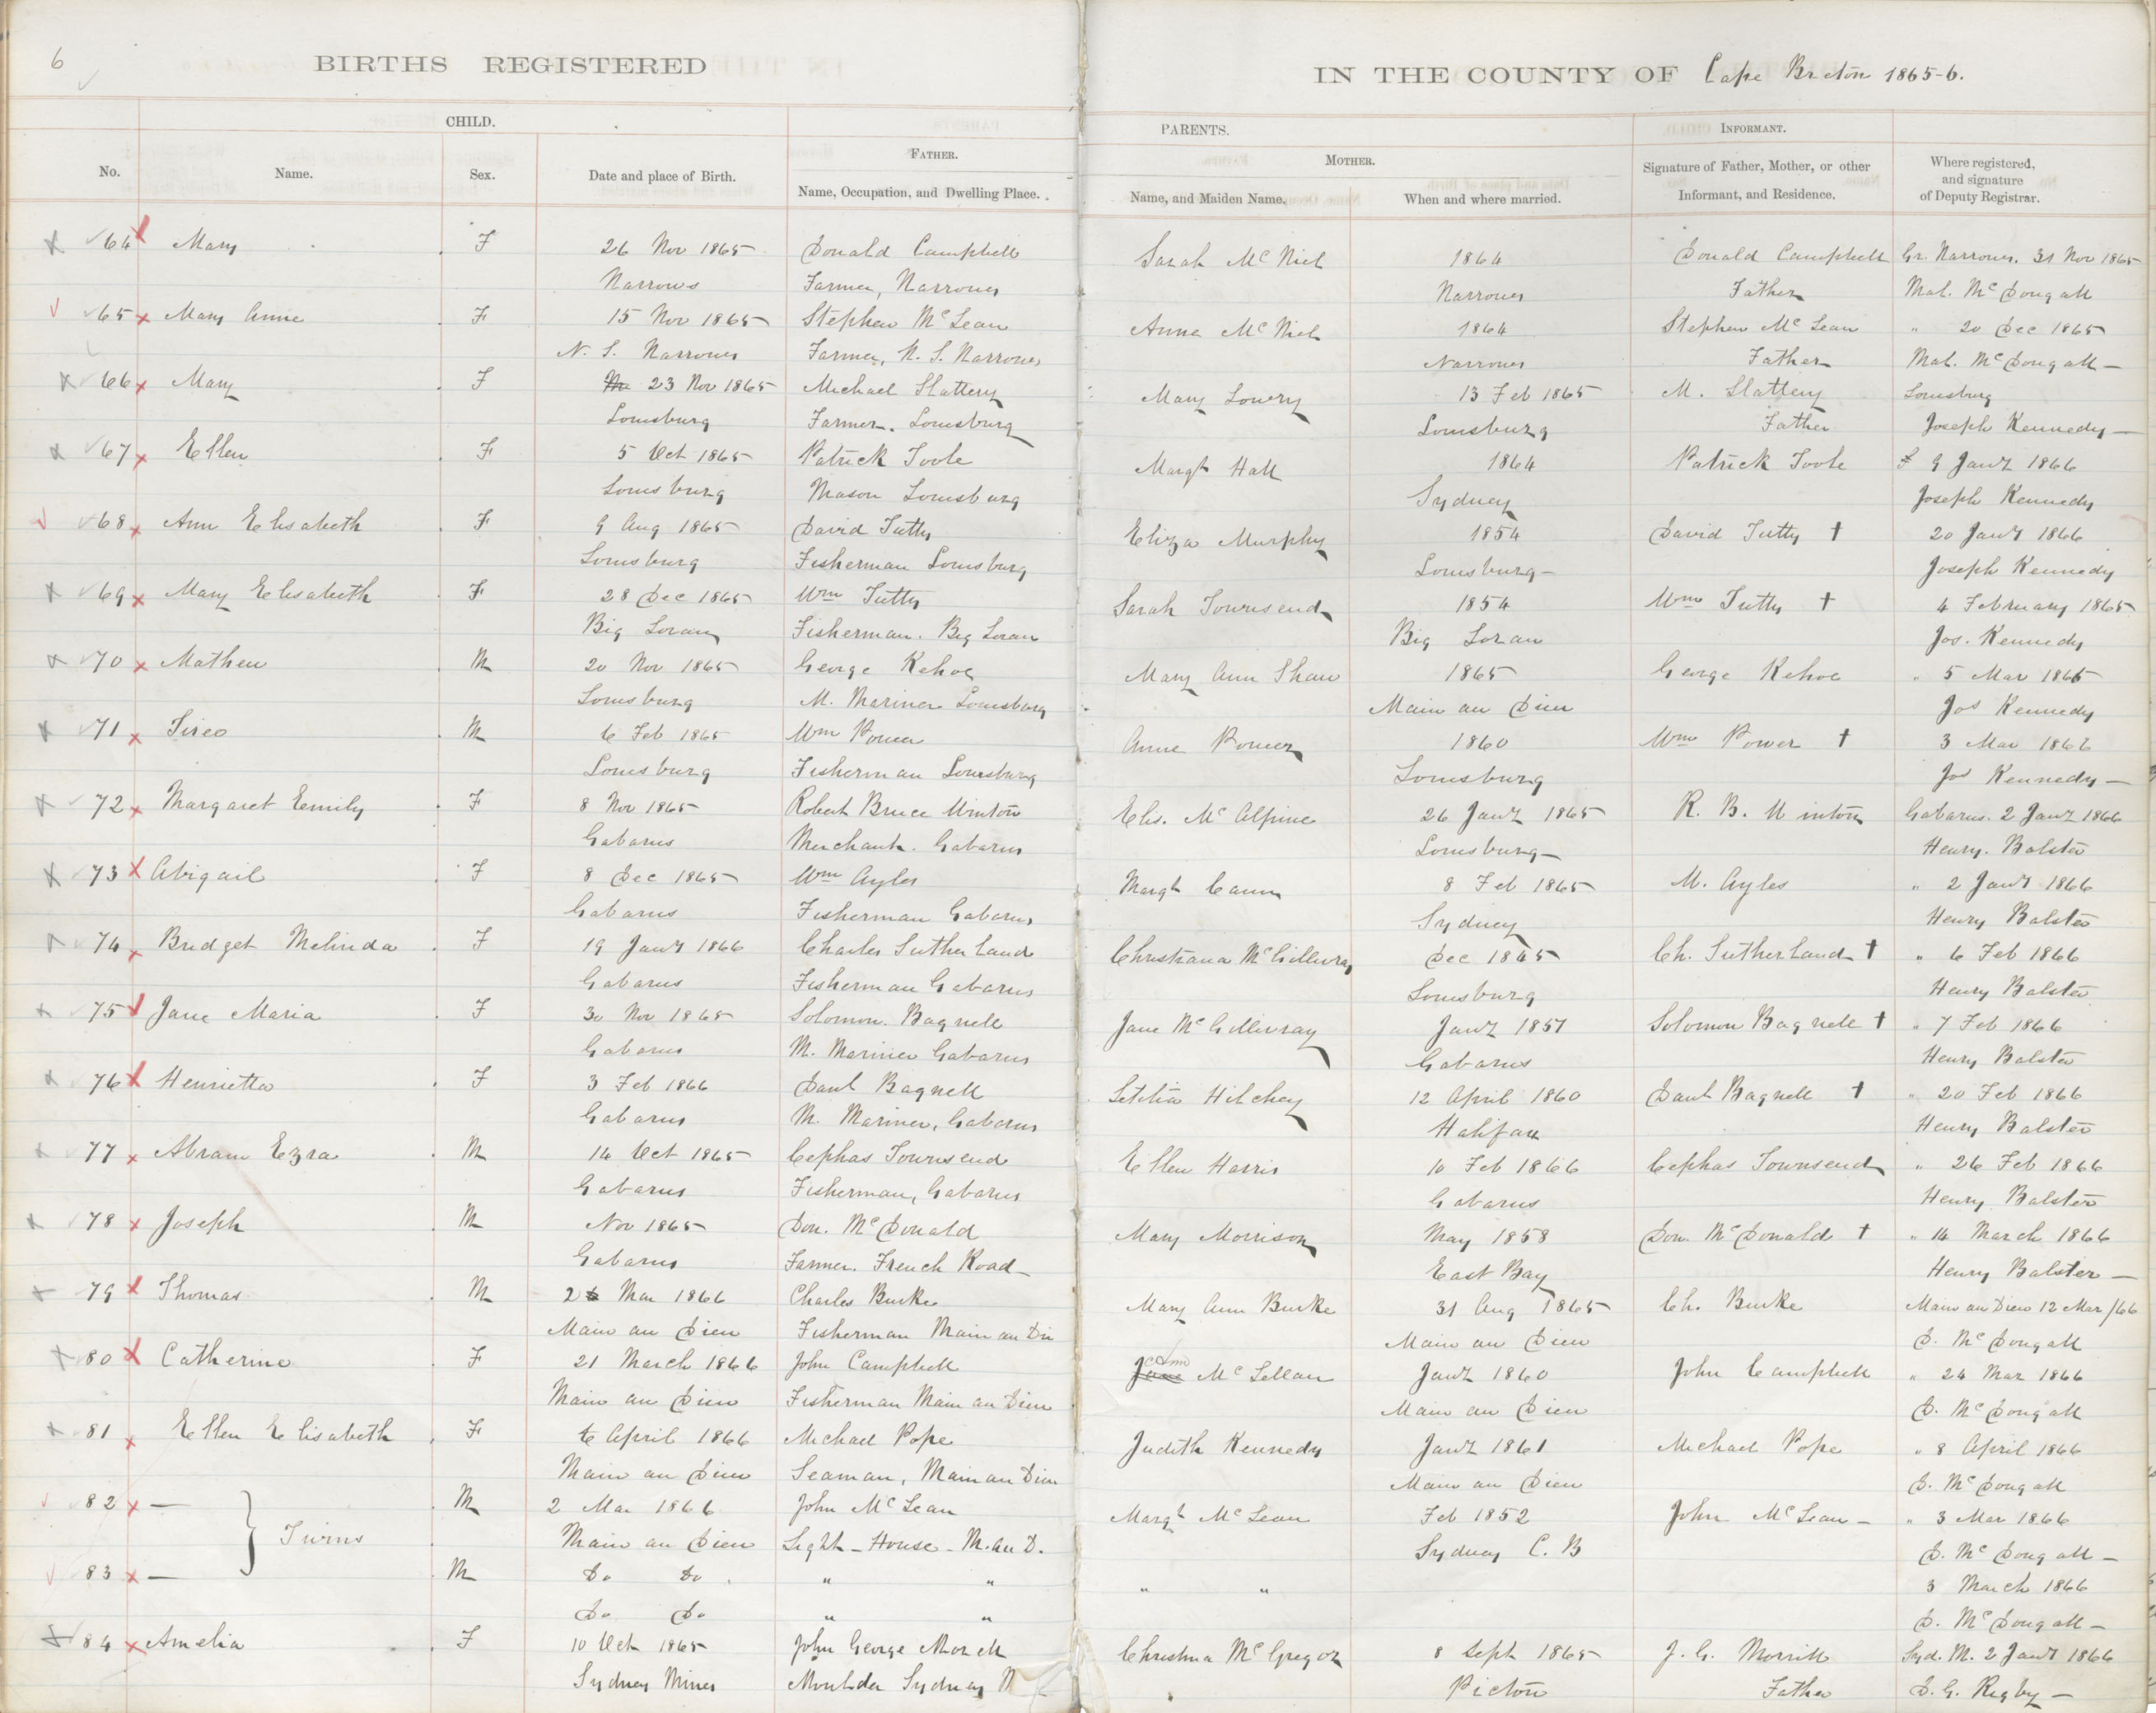 6
BIRTHS REGISTERED
IN THE COUNTY OF Cape Breton 1865-6.
CHILD.
PARENTS.
INFORMANT.
FATHER.
MOTHER.
No.
Name.
Sex.
Date and place of Birth.
Name, Occupation, and Dwelling Place.
Name, and Maiden Name.
When and where married.
Signature of Father, Mother, or other
Informant, and Residence.
Where registered,
and signature
of Deputy Registrar.
64 Mary F 26 Nov 1865 Donald Campbell Sarah McNiel 1864 Donald Campbell Gr. Narrows. 31 Nov 1865
Narrows Farmer, Narrows Narrows Father Mal. McDougall
65 Mary Anne F 15 Nov 1865 Stephen McLean Anne McNiel 1864 Stephen McLean " 20 Dec 1865
N. S. Narrows Farmer, N. S. Narrows Narrows Father Mal. McDougall
66 Mary F 23 Nov 1865 Michael Slattery Mary Lowry 13 Feb 1865 M. Slattery Louisburg
Louisburg Farmer. Louisburg Louisburg Father Joseph Kennedy
67 Ellen F 5 Oct 1865 Patrick Toole Margt Hall 1864 Patrick Toole 9 Jany 1866
Louisburg Mason Louisburg Sydney Joseph Kennedy
68 Ann Elisabeth F 9 Aug 1865 David Tutty Eliza Murphy 1854 David Tutty † 20 Jany 1866
Louisburg Fisherman Louisburg Louisburg Joseph Kennedy
69 Mary Elisabeth F 28 Dec 1865 Wm Tutty Sarah Townsend 1854 Wm Tutty † 4 February 1865
Big Loran Fisherman. Big Loran Big Loran Jos. Kennedy
70 Mathew M 20 Nov 1865 George Kehoe Mary Ann Shaw 1865 George Kehoe " 5 Mar 1865
Louisburg M. Mariner Louisburg Main au Dieu Jos Kennedy
71 M 6 Feb 1865 Wm Power Anne Power 1860 Wm Power † 3 Mar 1866
Louisburg Fisherman Louisburg Louisburg Jos Kennedy
72 Margaret Emily F 8 Nov 1865 Robert Bruce Winton Elis. McAlpine 26 Jany 1865 R. B. Winton Gabarus. 2 Jany 1866
Gabarus Merchant. Gabarus Louisburg Henry. Balster
73 Abigail F 8 Dec 1865 Wm Ayles Margt Cann 8 Feb 1865 M. Ayles " 2 Jany 1866
Gabarus Fisherman Gabarus Sydney Henry Balster
74 Bridget Melinda F 19 Jany 1866 Charles Sutherland Christiana McGillivray Dec 1845 Ch. Sutherland † " 6 Feb 1866
Gabarus Fisherman Gabarus Louisburg Henry Balster
75 Jane Maria F 30 Nov 1865 Solomon. Bagnell Jane McGillivray Jany 1857 Solomon Bagnell † " 7 Feb 1866
Gabarus M. Mariner Gabarus Gabarus Henry Balster
76 Henrietta F 3 Feb 1866 Danl Bagnell Letitia Hilchey 12 April 1860 Danl Bagnell † " 20 Feb 1866
Gabarus M. Mariner, Gabarus Halifax Henry Balster
77 Abram Ezra M 14 Oct 1865 Cephas Townsend Ellen Harris 10 Feb 1866 Cephas Townsend " 26 Feb 1866
Gabarus Fisherman, Gabarus Gabarus Henry Balster
78 Joseph M Nov 1865 Don. McDonald Mary Morrison May 1858 Don. McDonald † " 14 March 1866
Gabarus Farmer. French Road East Bay Henry Balster
79 Thomas M Mar 1866 Charles Burke Mary Ann Burke 31 Aug 1865 Ch. Burke Main au Dieu 12 Mar/66
Main au Dieu Fisherman Main au Di Main au Dieu D. McDougall
80 Catherine F 21 March 1866 John Campbell McLellan Jany 1860 John Campbell " 24 Mar 1866
Main au Dieu Fisherman Main au Dieu Main au Dieu D. McDougall
81 Ellen Elisabeth F 6 April 1866 Michael Pope Judith Kennedy Jany 1861 Michael Pope " 8 April 1866
Main au Dieu Seaman, Main au Dieu Main au Dieu D. McDougall
82 — M 2 Mar 1866 John McLean Margt McLean Feb 1852 John McLean " 3 Mar 1866
Twins Main au Dieu Light-House - M. au D. Sydney C. B D. McDougall
83 — M Do Do " " " " 3 March 1866
Do Do " " D. McDougall
84 Amelia F 10 Oct 1865 John George Morell Christina McGregor 8 Sept 1865 J. G. Morrill Syd. M. 2 Jany 1866
Sydney Mines Moulder Sydney M Pictou Father D. G. Rigby